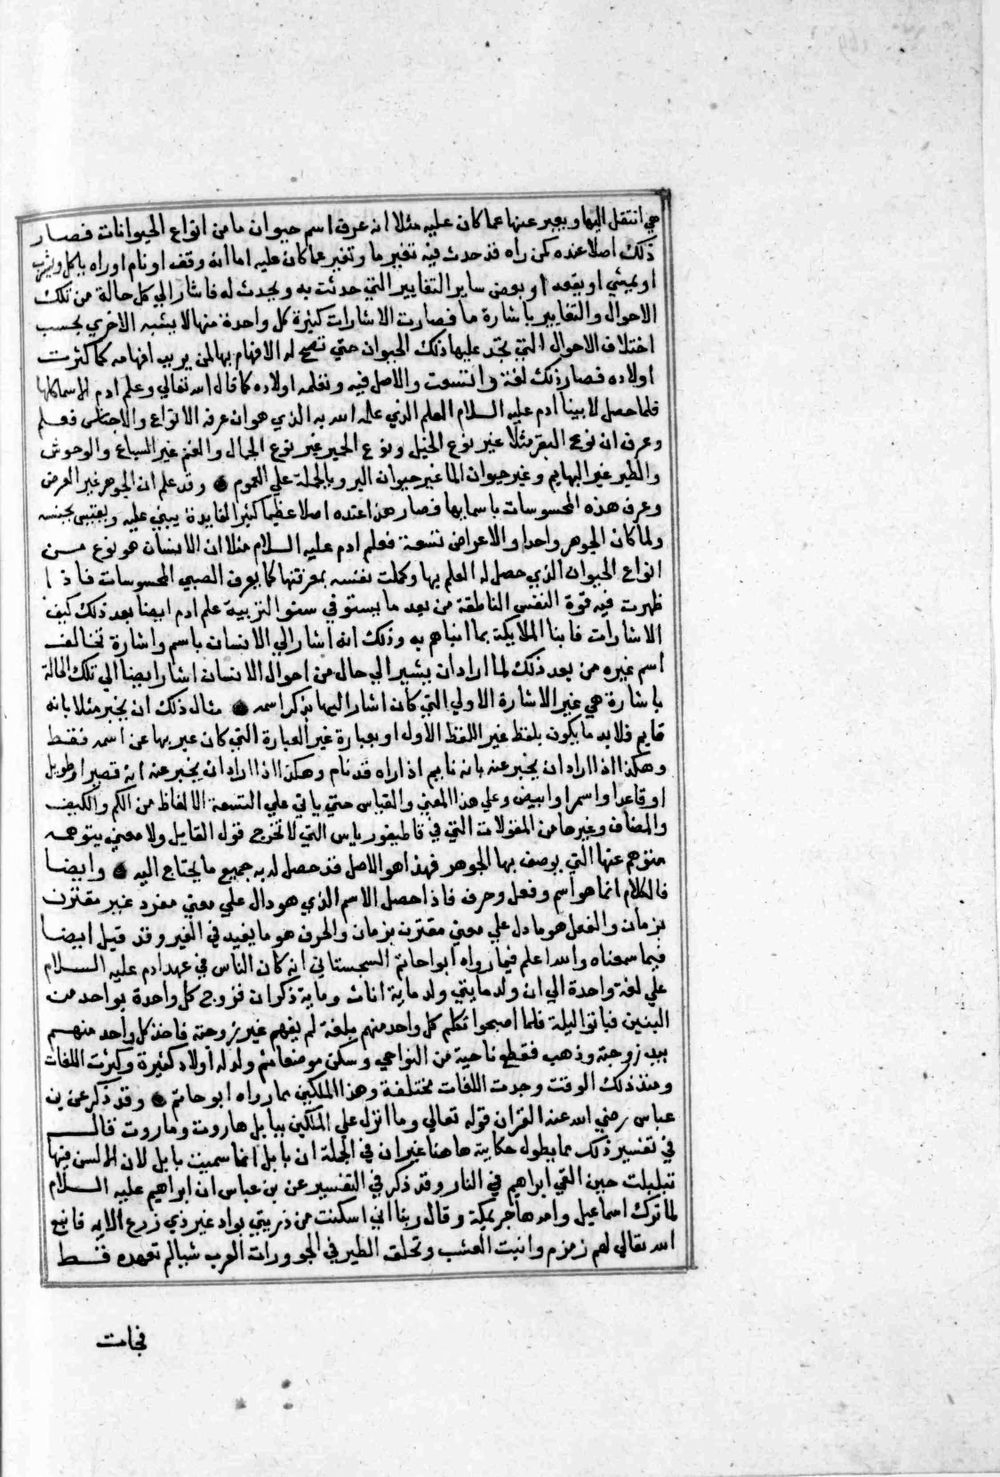 هي انتقل اليها ويعبر عنها عما كان عليه مثلا انه عرف اسم حيوان ما من انواع الحيوانات فصار
ذلك اصلا عنده كمن راه قد حدث فيه تغير ما وتغير عما كان عليه اما انه وقف او نام او راه ياكل ويشرب
او يمشي او يقعد او يومن ساير التغايير التي حدثت به ويحدث له فاشار الي كل حالة من تلك
الاحوال والتغايير باشارة ما فصارت الاشارات كثيرة كل واحدة منها لا يشبه الاخري بحسب
اختلاف الاحوال التي تجد عليها ذلك الحيوان حتي تصح له الافهام بها لمن يريد افهامه كما كثرت
اولاده فصار ذلك لغة واتسعت والاصل فيه وتعلمه اولاده كما قال الله تعالي وعلم ادم الاسما كلها
فلما حصل لابينا ادم عليه السلام العلم الذي علمه الله به الذي هو ان عرفه الانواع والاجناس فعلم
وعرف ان نوع البقر مثلا غير نوع الخيل ونوع الحمير غير نوع الجمال والغنم غير السباع والوحوش
والطير غير البهايم وغير حيوان الما غير حيوان البر وبالجملة علي العموم وقد علم ان الجوهر غير العرض
وعرف هذه المحسوسات باسمايها فصار هذا عنده اصلا عظيما كثير الفايدة يبني عليه ويقتبس بجنسه
ولما كان الجوهر واحدا والاعراض تسعة فعلم ادم عليه السلام مثلا ان الانسان هو نوع من
انواع الحيوان الذي حصل له العلم بها وكملت نفسه بمعرفتها كما يعرف الصبي المحسوسات فاذا
ظهرت فيه قوة النفس الناطقة من بعد ما يستوفي سنو التربية علم ادم ايضا بعد ذلك كيف
الاشارات فانبا الملايكة بما انباهم به وذلك انه اشار الي الانسان باسم واشارة تخالف
اسم غيره من بعد ذلك لما اراد ان يشير الي حال من احوال الانسان اشار ايضا الي تلك الحالة
باشارة هي غير الاشارة الاولي التي كان اشار اليها بذكر اسمه مثال ذلك ان يخبر مثلا بانه
قايم فلا بد ما يكون بلفظ غير اللفظ الاول او بعبارة غير العبارة التي كان عبر بها عن اسمه فقط
وهكذا اذا اراد ان يخبر عنه بانه نايم اذا راه قد نام وهكذا اذا اراد ان يخبر عنه انه قصير او طويل
او قاعد او اسمر او ابيض وعلي هذا المعني والقياس حتي ياتي علي التسعة الالفاظ من الكم والكيف
والمضاف وغيرها من المقولات التي في قاطيغورياس التي لا تخرج قول القايل ولا معني يتوهمه
متوهم عنها التي يوصف بها الجوهر فهذا هو الاصل قد حصل له به جميع ما يحتاج اليه وايضا
فالكلام انما هو اسم وفعل وحرف فاذا حصل الاسم الذي هو دال علي معني مفرد غير مقترن
بزمان والفعل هو ما دل علي معني مقترن بزمان والحرف هو ما يفيد في الغير وقد قيل ايضا
فيما سمعناه والله اعلم فيما رواه ابو حاتم السجستاني انه كان الناس في عهد ادم عليه السلام
علي لغة واحدة الي ان ولد مايتي ولد ماية اناث وماية ذكران فزوج كل واحدة بواحد من
البنين فباتوا ليلة فلما اصبحوا تكلم كل واحد منهم بلغة لم يفهم غير زوجته فاخذ كل واحد منهم
بيد زوجته وذهب فقطع ناحية من النواحي وسكن موضعا ثم ولد له اولاد كثيرة وكثرت اللغات
ومنذ ذلك الوقت وجدت اللغات مختلفة وهذا الملكين مما رواه ابو حاتم وقد ذكر عن بن
عباس رضي الله عنه القران قوله تعالي وما انزل علي الملكين ببابل هاروت وماروت قال
في تفسير ذلك مما يطول حكايته هاهنا غير ان في الجملة ان بابل انما سميت بابل لان الالسن فيها
تبلبلت حين القي ابراهيم في النار وقد ذكر في التفسير عن بن عباس ان ابراهيم عليه السلام
لما ترك اسماعيل وامه هاجر بمكة وقال ربنا اني اسكنت من ذريتي بواد غير ذي زرع الايه فانبع
الله تعالي لهم زمزم وانبت العشب وتحلق الطير في الجو ورات العرب شيا لم تعهده قط
فجات